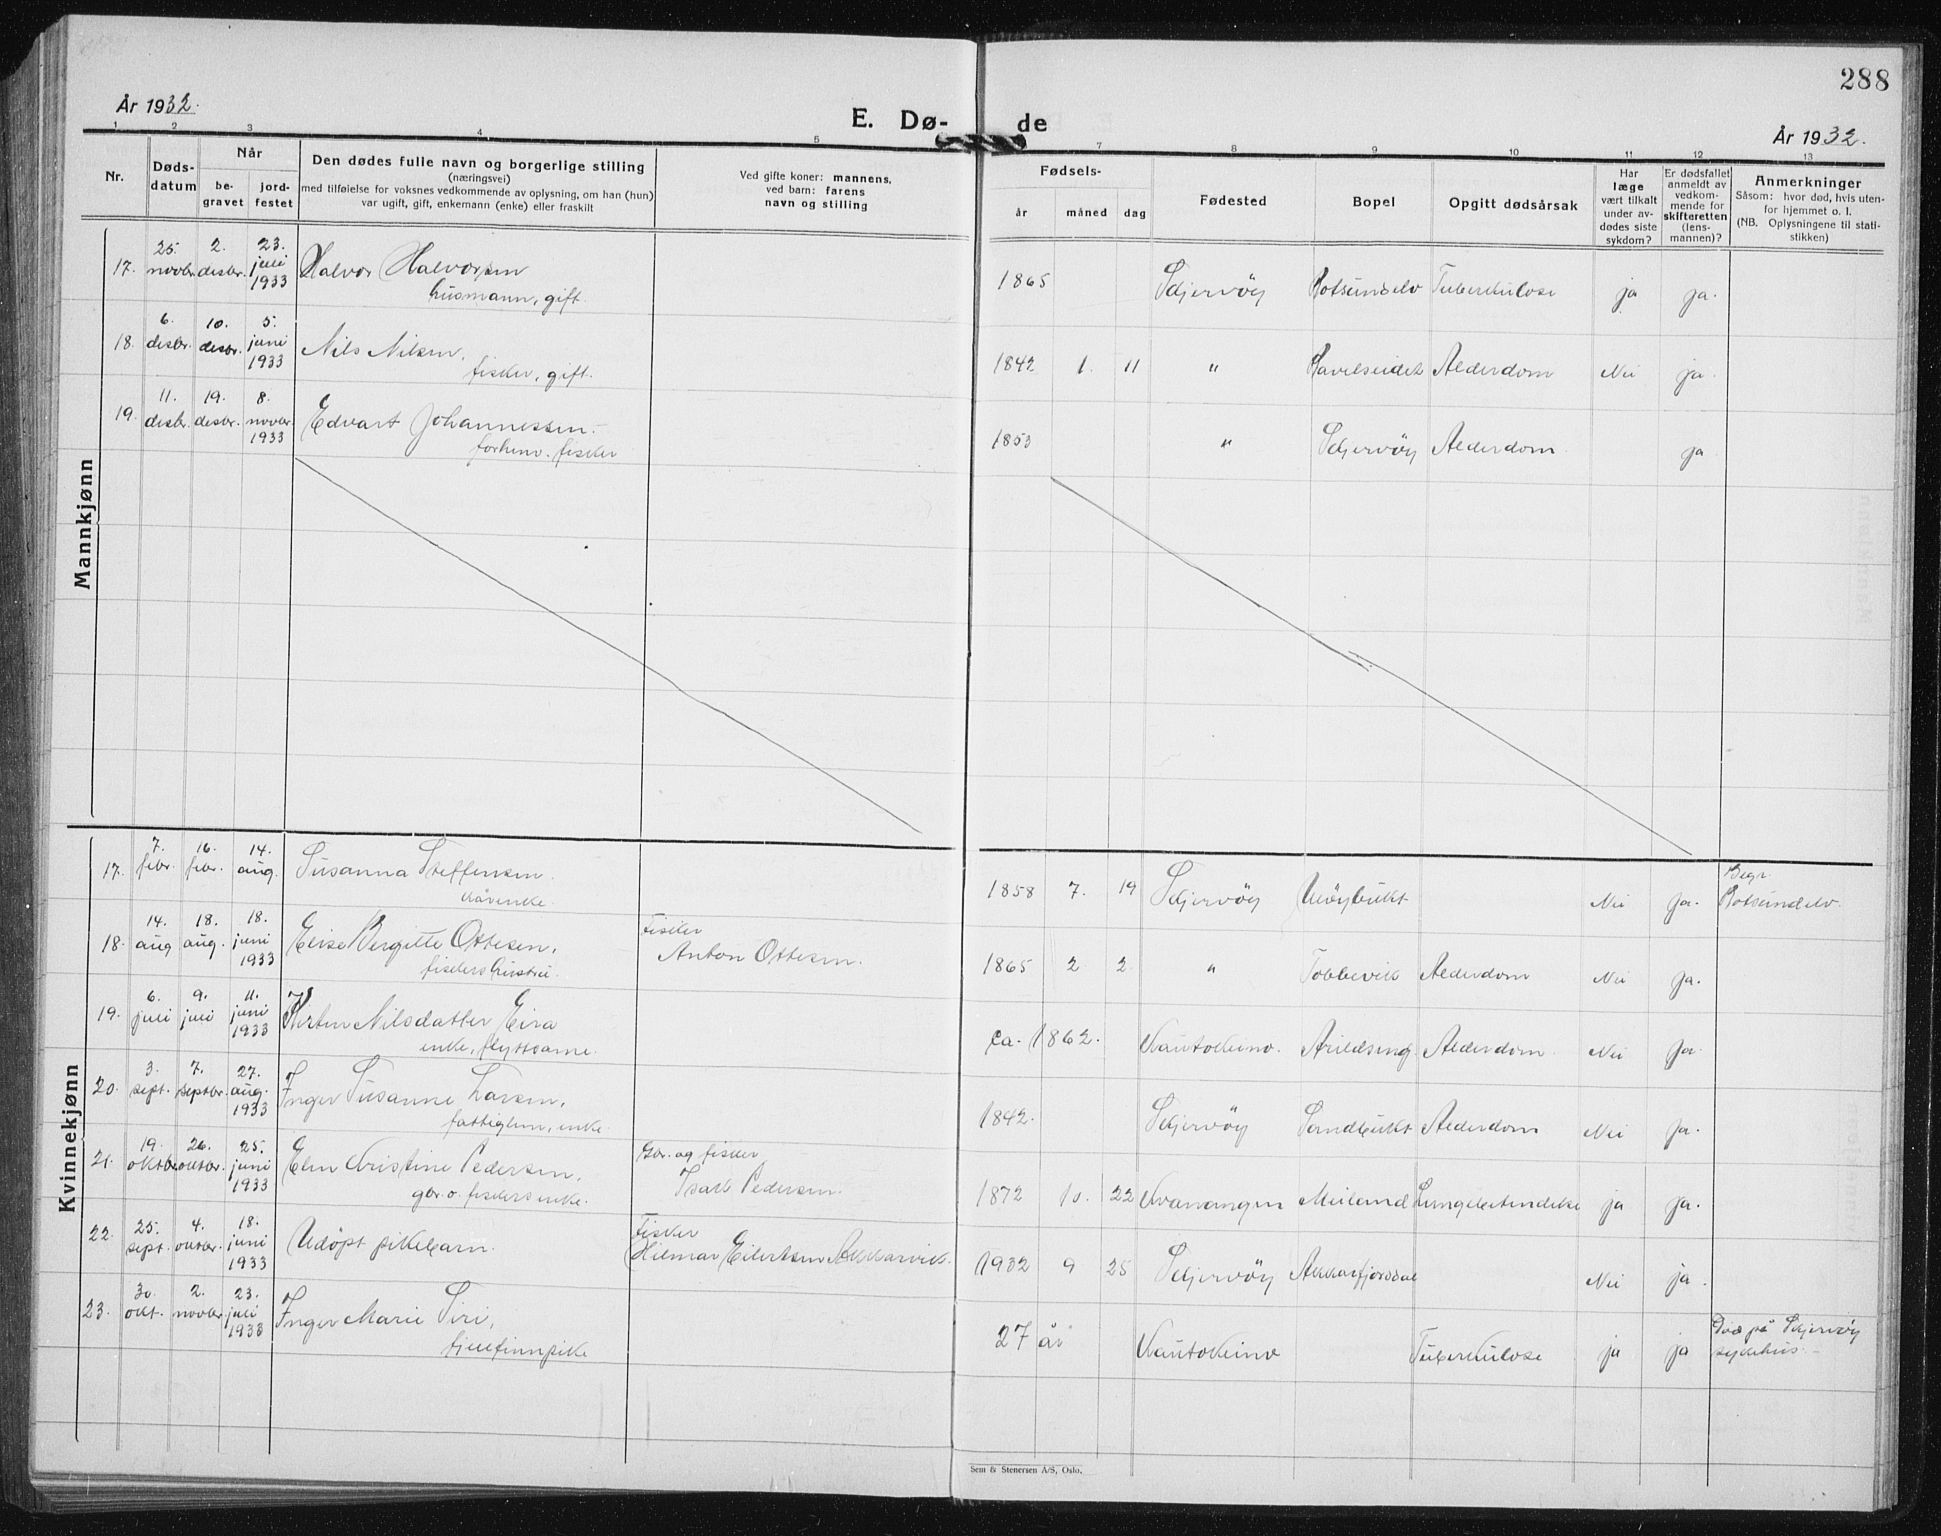 288
År 1932.
E. Dø-
de
År 1932.
1 2 3 4 5 7 8 9 10 11 12 13
Nr.
Døds-
datum
Når
be-
gravet
jord-
festet
Den dødes fulle navn og borgerlige stilling
(næringsvei)
med tilføielse for voksnes vedkommende av oplysning, om han (hun)
var ugift, gift, enkemann (enke) eller fraskilt
Ved gifte koner: mannens,
ved barn: farens
navn og stilling
Fødsels-
år måned dag
Fødested
Bopel
Opgitt dødsårsak
Har
læge
vært tilkalt
under av-
dødes siste
sykdom?
Er dødsfallet
anmeldt av
vedkom-
mende for
skifteretten
(lens-
mannen)?
Anmerkninger
Såsom: hvor død, hvis uten-
for hjemmet o. l.
(NB. Oplysningene til stati-
stikken)
Mannkjønn
17. 25. novbr. 2. desbr. 23. juli 1933 Halvor Halvorsen 1865 Skjervøy Rotsundelv Tuberkulose ja ja.
husmann, gift.
18. 6. desbr. 10. desbr. 5. juni 1933 Nils Nilsen, 1842 1. 11 " Ravelseidet Alderdom Nei ja.
fisker, gift.
19. 11. desbr. 19. desbr. 8. novbr. 1933 Edvart Johannessen. 1853 " Skjervøy Alderdom ja
forhenv. fisker
Kvinnekjønn
17. 7. febr. 16. febr. 14. aug. Susanna Steffensen. 1858 7. 19 Skjervøy Uløybukt Nei ja. Begr. Rotsundelv.
enke.
18. 14. aug 18. aug. 18. juni 1933 Elise Bergitte Ottesen, Fisker Anton Ottesen. 1865 2. 2. " Tobbevik Alderdom Nei ja.
fiskers hustru.
19. 6. juli 9. juli 11. juni 1933 Kirsten Nilsdatter Eira ca. 1862. Kautokeino. Arildseng. Alderdom. Nei ja.
enke, flyttsame.
20. 3. sept. 7. septbr. 27. aug. 1933 Inger Susanne Larsen, 1842. Skjervøy Sandbukt Alderdom Nei ja.
fattiglem, enke.
21. 19. oktbr. 26. oktbr. 25. juni 1933 Elen Kristine Pedersen, Gbr. og fisker Isak Pedersen. 1872 10. 22 Kvænangen Meiland Lungebetendelse ja ja.
gbr. o. fiskers enke.
22. 25. sept. 4. oktbr. 18. juni 1933 Udøpt pikebarn. Fisker Hilmar Eilertsen Akkarvik. 1932 9 25 Skjervøy Akkarfjorddal Nei ja.
23. 30. okt. 2. novbr. 23. juli 1933 Inger Marie Siri, 27 år Kautokeino Tuberkulose ja ja Død på Skjervøy sykehus.
fjellfinnpike
Sem & Stenersen A/S, Oslo.